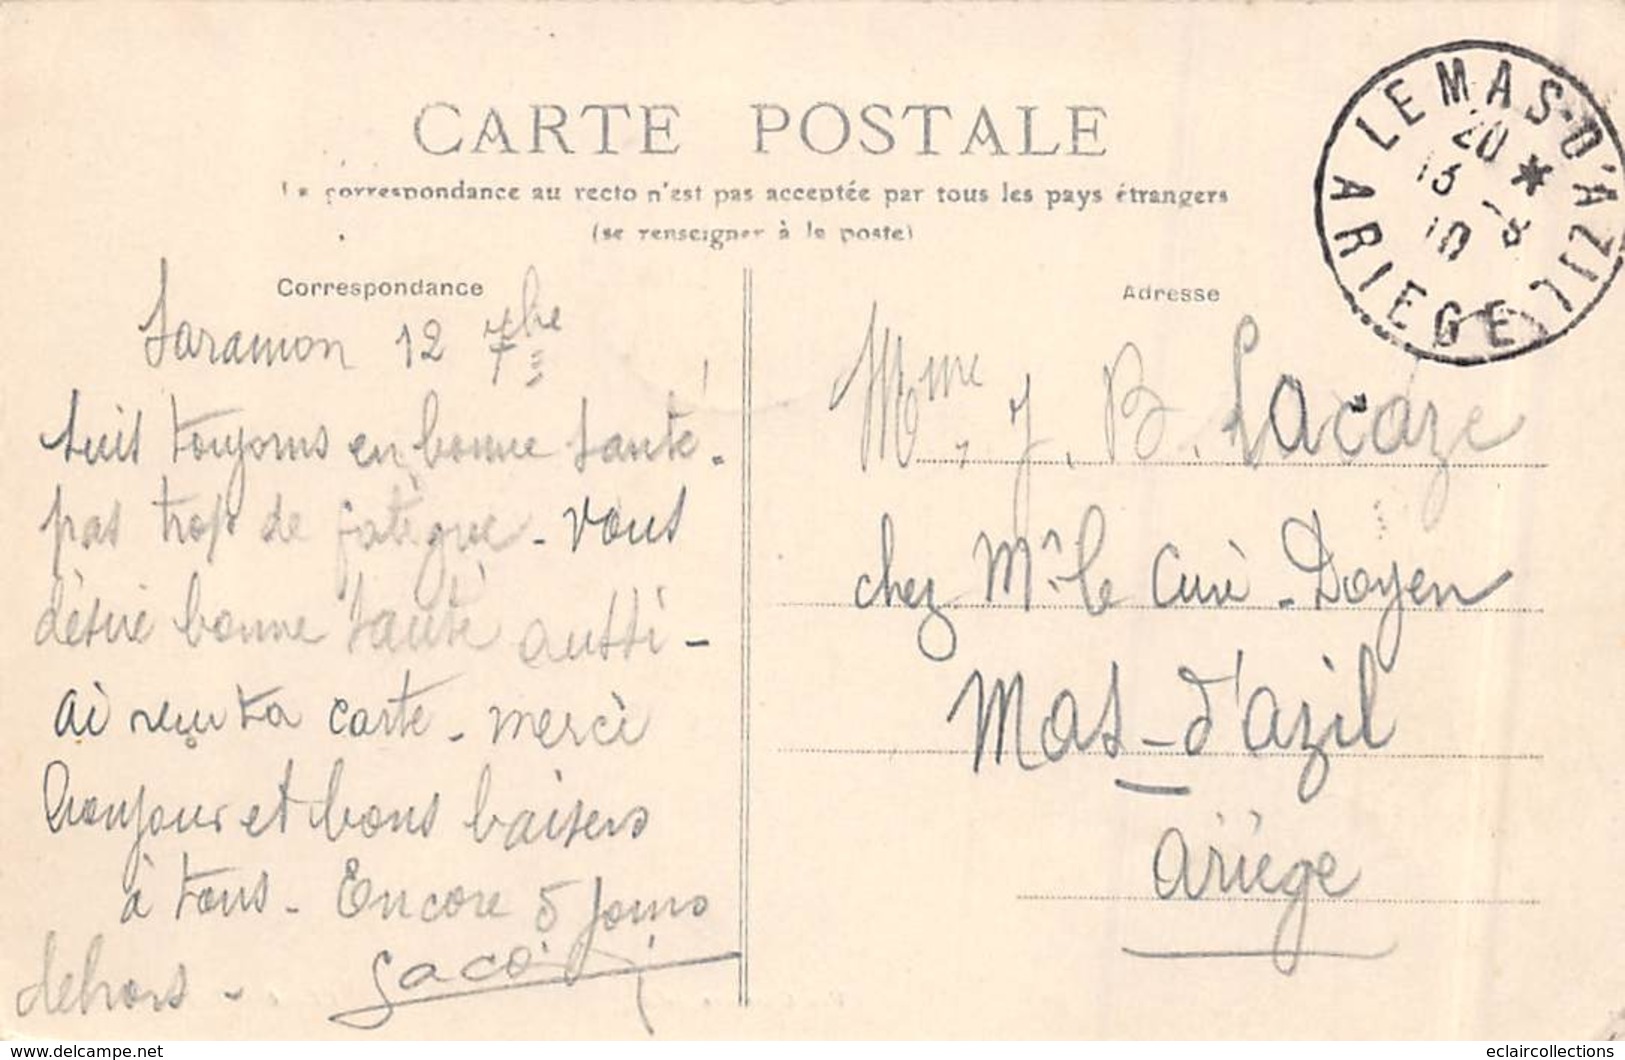 CARTE POSTALE
La correspondance au recto n'est pas acceptée par tous les pays étrangers
(se renseigner à la poste)
Correspondance
Saramon 12 7bre
Suis toujours en bonne santé.
pas trop de fatigue - Vous
désire bonne santé aussi -
ai reçu ta carte - merci
Bonjour et bons baisers
à tous - Encore 5 jours
dehors -
LE MAS-D'AZIL
20 *
13 -8
10
ARIEGE
Adresse
Mme J. B. Lacaze
chez Mr le Curé - Doyen
Mas-d'azil
ariège
delcampe.net
eclaircollections